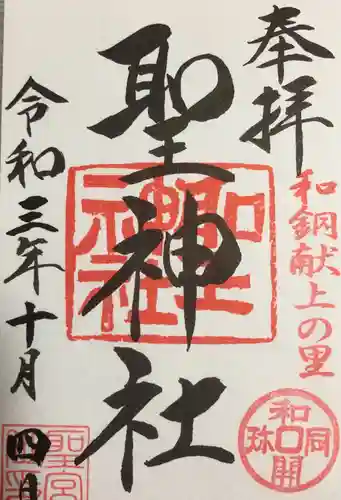 奉拝
和銅献上の里
和同開珎
聖神社
聖神社
令和三年十月四日